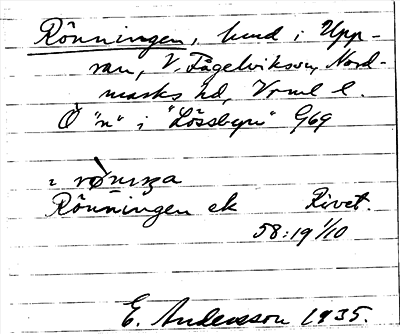 Rönningen, hmd i Upp-
ran, V. Fågelvikssn, Nord-
marks hd, Vrml l.
Ö "n" i "Lössbyn" G69
i rö̀nıŋa
Rönningen ek Rivet.
58:19 1/10
E. Andersson 1935.